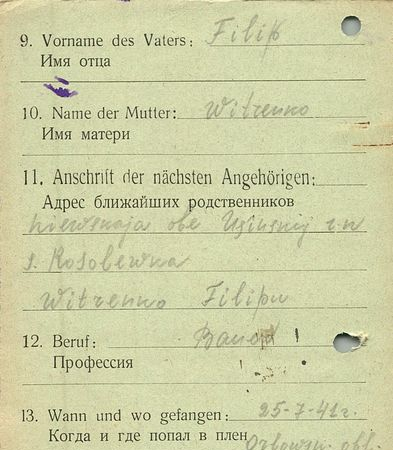 9. Vorname des Vaters: Filip
Имя отца
10. Name der Mutter: Witrenko
Имя матери
11. Anschrift der nächsten Angehörigen:
Адрес ближайших родственников
kiewskaja obl Usinskij r-n
s.
Witrenko Filipu
12. Beruf: Bauer
Профессия
13. Wann und wo gefangen: 25-7-41г.
Когда и где попал в плен obl.